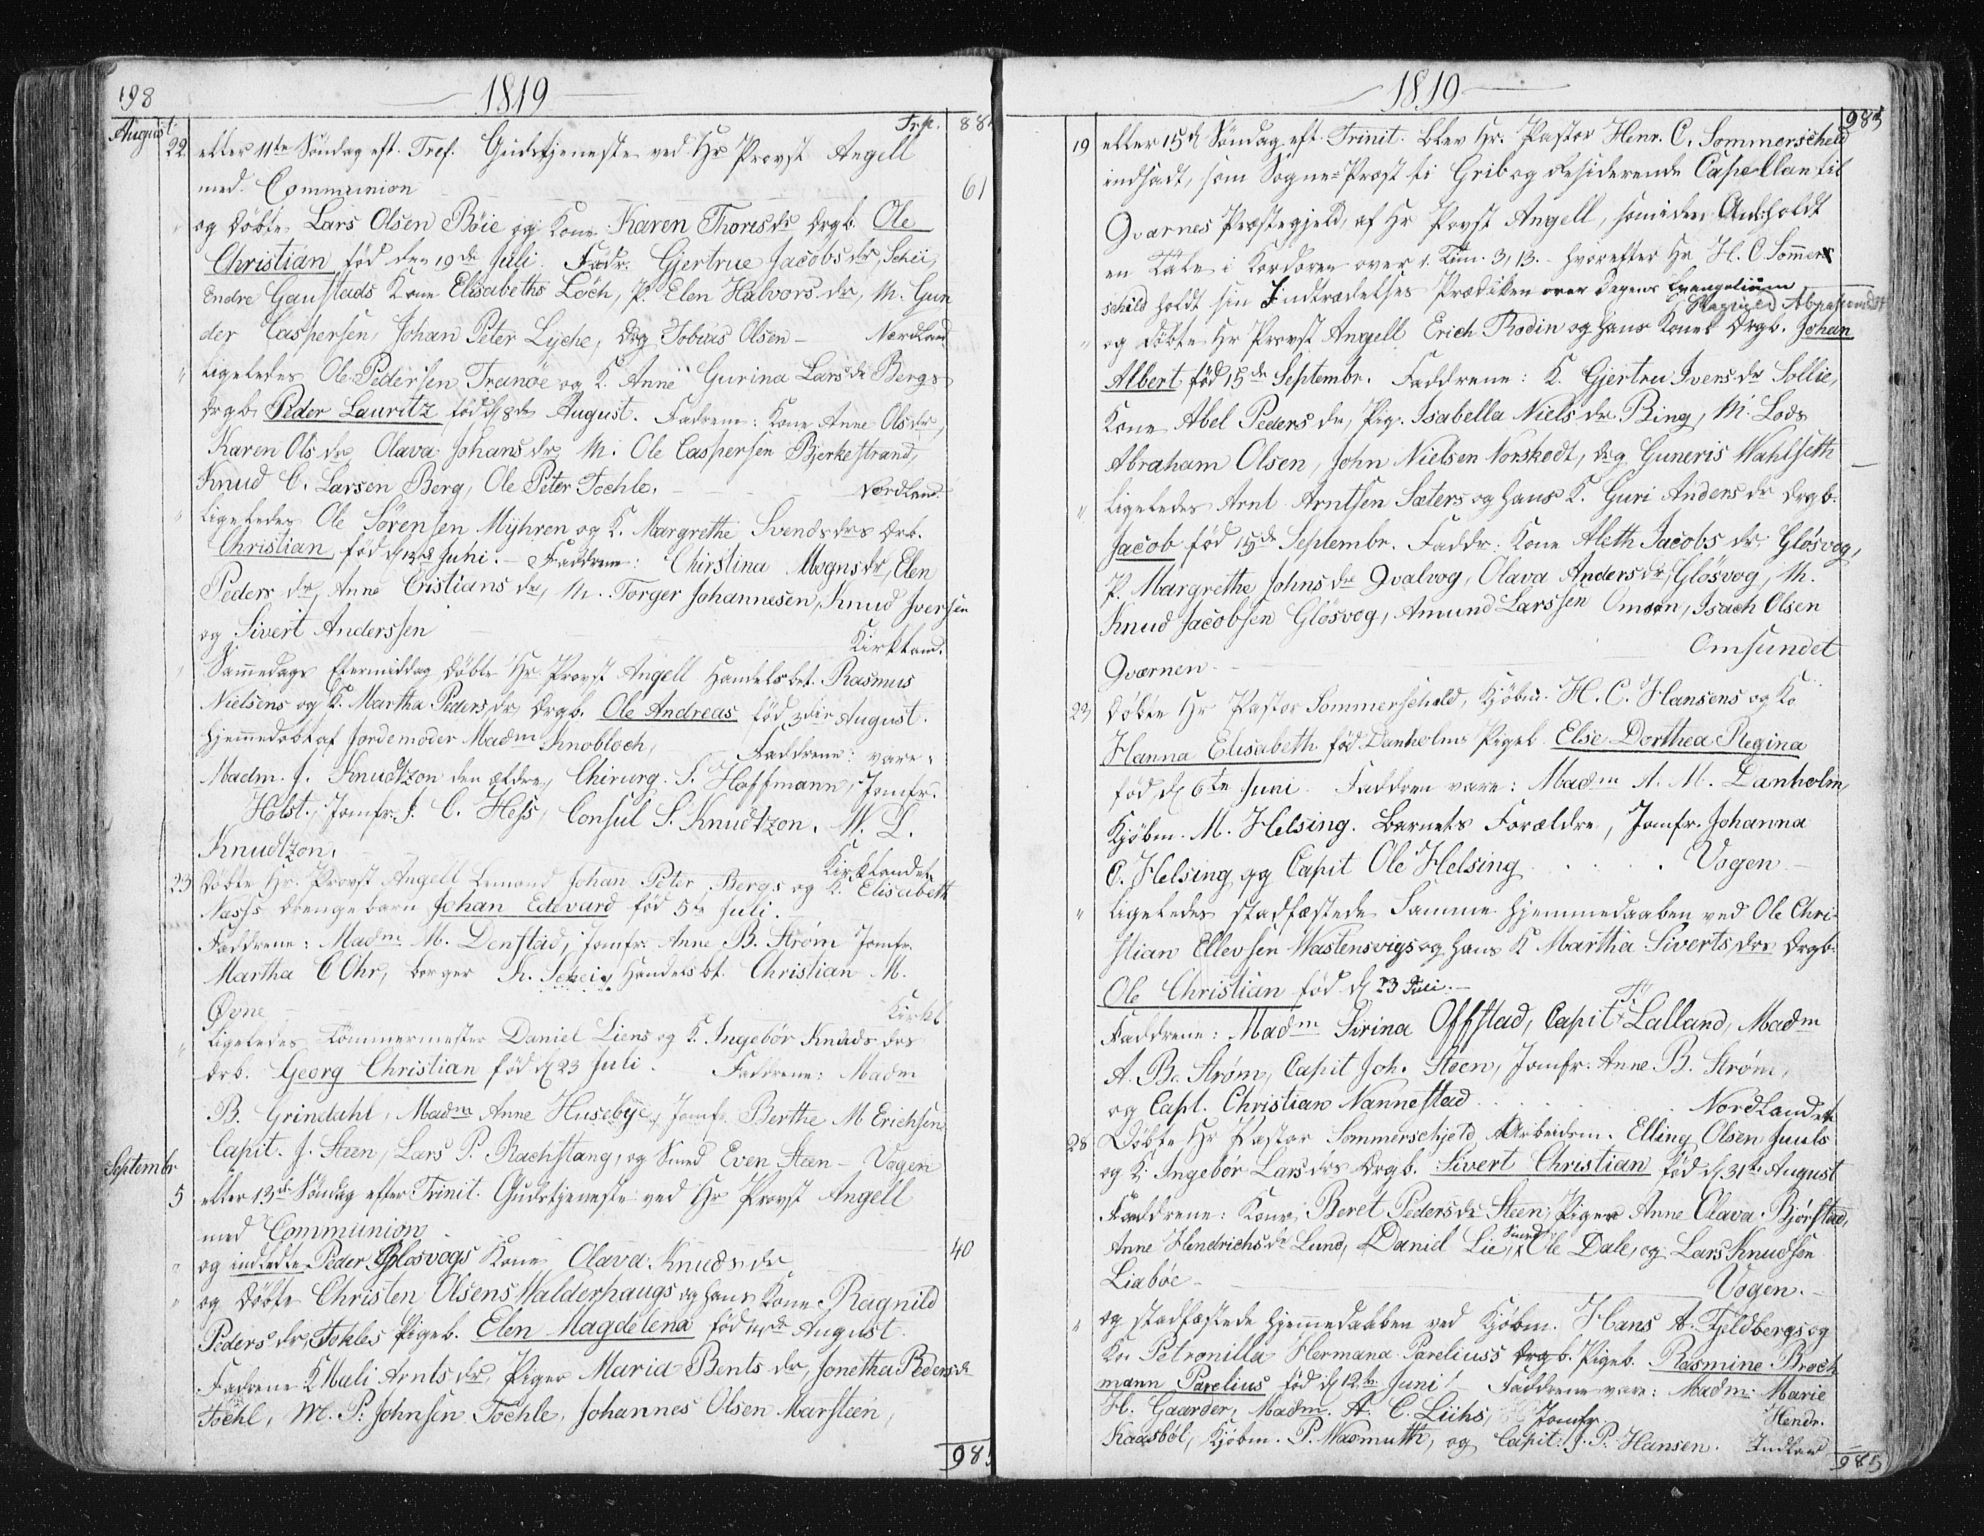 198
1819
August
22. eller 11te Søndag eft. Tref. Gudstjeneste ved Hr Provst Angell
Trsp. 88
med Communion 61
og døbte Lars Olsen Böie og Kone Karen Thoresdr Drgb. Ole
Christian fød den 19de Juli. Fadr. Gjertrue Jacobsdr, Schei,
Endre Gaustads Kone Elisabeths Loch, P. Elen Halvorsdr, M. Gun
der Caspersen, Johan Peter Lyche, Drg Tobias Olsen — Nordland
" Ligeledes Ole Pedersen Tranöe og K. Anne Gurina Larsdr Bergs
Drgb. Peder Lauritz fød d 8de August. Fadrene: Kone Anne Olsdr,
Karen Olsdr, Olava Johansdr, M. Ole Caspersen Bjerkestrand,
Knud C. Larsen Berg, Ole Peter Tochle. Nordland.
" Ligeledes Ole Sörensen Mÿhren og K. Margrethe Svendsdrs Drb.
Christian fød d 12de Juni. — Faddrene: Chirstina Mognsdr, Elen
Pedersdr, Anne Cristiansdr, M. Torger Johannesen, Knud Iversen
og Sivert Anderssen Kirkland.
" Sammedags Eftermiddag døbte Hr Provst Angell Handelsbet. Rasmus
Nielsens og K. Martha Pedersdr Drgb. Ole Andreas fød 3die August.
hjemmedøbt af Jordemoder Madm Knobloch, Faddrene: vare:
Madm. J. Knudtzon den ældre, Chirurg. S. Hoffmann, Jomfr.
Holst, Jomfr. J. C. Hess, Consul S. Knudtzon. W. L.
Knudtzon. Kirklandet
23 Døbte Hr. Provst Angell Johan Peter Bergs og K. Elisabeth
Næss drengebarn Johan Edevard fød 5te Juli.
Faddrene: Madm M. Donstad, Jomfr. Anne B. Strøm Jomfr.
Martha C Ohr, borger K. Scheie, Handelsbt. Christian M.
Øvne Kirkl
" Ligeledes Tömmermester Daniel Liens og K. Ingebór Knudsdrs
Drb. Georg Christian fød d 23 Juli. Faddrene: Madm
B. Grindahl, Madm Anne Husebÿe, Jomfr Berthe M Erichsen
Capit. J. Steen, Lars P. Rachstang, og Smed Even Steen — Vogen
Septembr
5 eller 13de Søndag efter Trinit. Gudstjeneste ved Hr Provst Angell
med Communion 40
" og indledte Peder Glosvogs Kone Olava Knudsdr
" og døbte Christen Olsens Walderhaugs og hans Kone Ragnild
Pedersdr, Tokles Pigeb. Elen Magdelena fød 11de August.
Fadrene K Mali Arntsdr, Piger Maria Bentsdr, Jonetha Pedersdr
Tochl, M. P. Johnsen Tochle, Johannes Olsen Marsteen,
985
1819
985
19 eller 15de Søndag eft Trinit. blev Hr. Pastor Henr. C. Sommerscheld
indsadt, som Sogne-Præst til Grib og residerende Capellan til
Qvarnes Præstegjeld, af Hr Provst Angell, som i den Anl. holdt
en Tale i Kordoren over 1. Tim. 3, 13. — hvorefter Hr H. C. Sommer
schild holdt sin Indtrædelses Prædiken over dagens Evangelium,
Ragnild Abrahamsdt
" og døbte Hr Provst Angell Erich Rodin og hans Kones Drgb. Johan
Albert fød 15de Septembr. Faddrene: K. Gjertru Iversdr Sollie,
Kone Abel Pedersdr, Pig. Isabella Nielsdr Ring, M. Lods
Abraham Olsen, John Nielsen Norskodt, drg Guneris Wahlseth —
" Ligeledes Arnt Arntsen Sæters og hans K. Guri Andersdr Drgb.
Jacob fød 15de Septembr. Faddr. Kone Aleth Jacobsdr Glösvog,
P. Margrethe Johnsdr Qvalvog, Olava Andersdr Glösvog, M.
Knud Jacobsen Glösvog, Amund Larssen Omson, Isach Olsen
Omsundet
Qværnen
23 Døbte Hr Pastor Sommerscheld, Kjöbm. H. C. Hansens og Ko
Hanna Elisabeth fød Danholms Pigeb. Else Dorthea Regina
fød d 6te Juni. Faddren vare: Madm A. M. Danholm,
Kjöbm. M. Helsing. Barnets Forældre, Jomfr. Johanna
C. Helsing, og Capit Ole Helsing . . . . Vogen —
" Ligeledes stadfæstede Samme hjemmedaaben ved Ole Chri-
stian Ellevsen Wastensvigs og hans K Martha Sivertsdrs Drgb.
Ole Christian fød d 23 Juli. —
Faddrene: Madm Sirina Offstad, Capit Lalland, Madm
A. B. Strøm, Capit Joh. Steen, Jomfr. Anne B. Strøm,
og Capt. Christian Nannestad . . . . Nordlandet
28 Døbte Hr Pastor Sommerschjeld, Arbeidsm. Elling Olsen Juuls
og K. Ingebör Larsdrs Drgb. Sivert Christian fød d 31te August
Faddrene: Kone Beret Pedersdr Steen, Piger Anne Olava Bjørstad,
Anne Hendrichsdr Lund, Daniel Lie, Smed Ole Dale, og Lars Knudsen
Liabóe — Vogen. —
" og stadfæstede hjemmedaaben ved Kjöbm. Hans A. Fjeldbergs og
Ko. Petronilla Hermana Pareliuss Drgb. Pigeb. Rasmine Broch
mann Parelius fød d 12te Juni. Faddrene vare: Madm Marie
H. Gaarder, Madm. A. C. Lühs, Jomfr. Hendr.
Kaasböl, Kjöbm. P. Wasmuth, og Capit: J. P. Hansen. Indland —
985